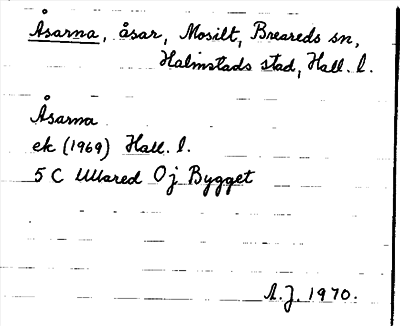 Åsarna, åsar, Mosilt, Breareds sn,
Halmstads stad, Hall. l.
Åsarna
ek (1969) Hall. l.
5 C Ullared Oj Bygget
A.J. 1970.